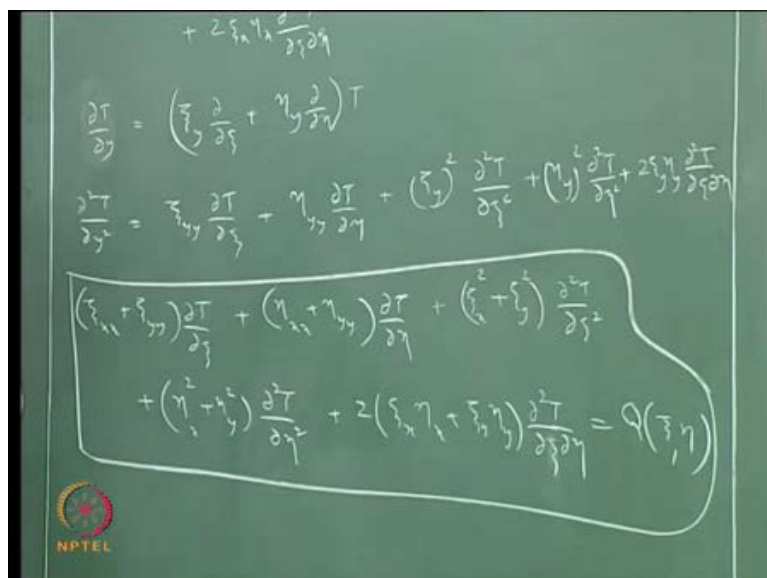 + 2 ξ_x η_x ∂²T/∂ξ∂η
∂T/∂y = (ξ_y ∂/∂ξ + η_y ∂/∂η) T
∂²T/∂y² = ξ_yy ∂T/∂ξ + η_yy ∂T/∂η + (ξ_y)² ∂²T/∂ξ² + (η_y)² ∂²T/∂η² + 2ξ_y η_y ∂²T/∂ξ∂η
(ξ_xx + ξ_yy) ∂T/∂ξ + (η_xx + η_yy) ∂T/∂η + (ξ_x² + ξ_y²) ∂²T/∂ξ²
+ (η_x² + η_y²) ∂²T/∂η² + 2(ξ_x η_x + ξ_x η_y) ∂²T/∂ξ∂η = Q(ξ, η)
NPTEL